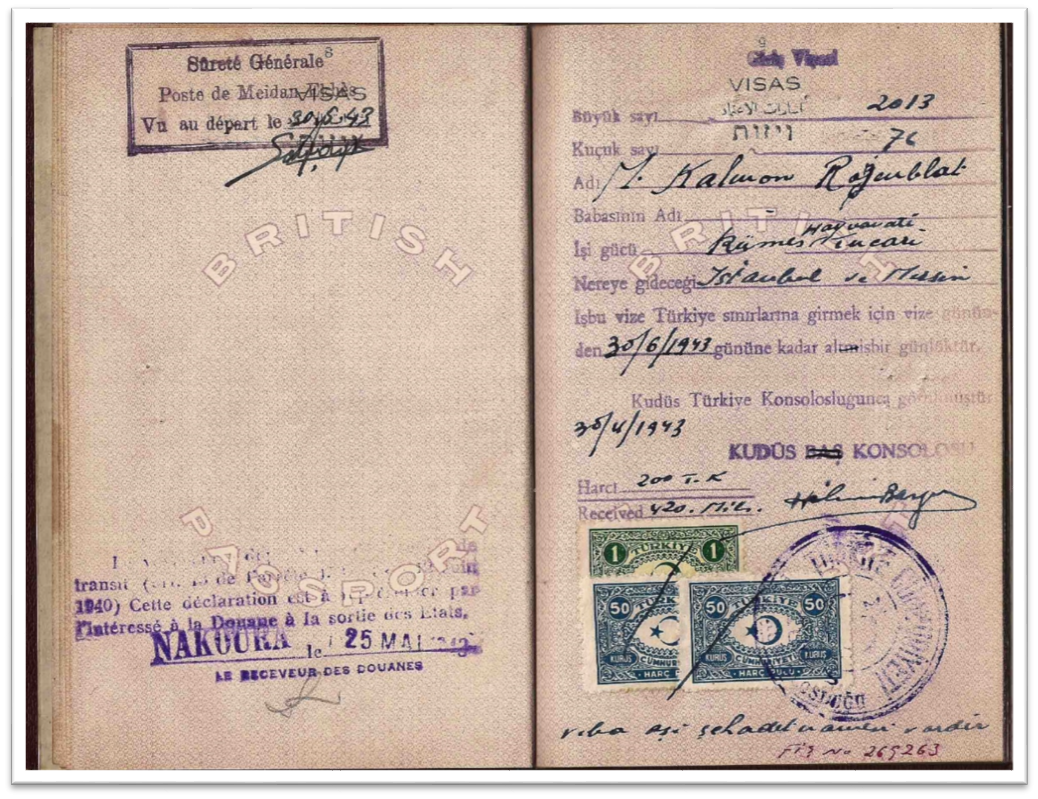 8
Sûreté Générale
VISAS
Poste de Meidan-Ekbès
Vu au départ le 30/5.43
BRITISH
PASSPORT
transit (
1940) Cette déclaration est à
par
l'intéressé à la Douane à la sortie des Etats.
NAKOURA le 25 MAI 1943
LE RECEVEUR DES DOUANES
9
Giriş Vizesi
VISAS
ויזות
Büyük sayı 2013
Kuçuk sayı 76
Adı M. Kalmon Rozenblat
Babasının Adı
Hayvanati
İşi gücü Kümes Tüccari
Nereye gideceği İstanbul ve Mersin
İşbu vize Türkiye sınırlarına girmek için vize günün-
den 30/6/1943 gününe kadar altmisbir günlüktür.
Kudüs Türkiye Konsolosluğunca görülmüştür
30/4/1943
KUDÜS BAŞ KONSOLOSU
Harcı 200 T.K
Received 420. Mils.
BRITISH
1 TÜRKİYE 1
50 TÜRKİYE 50
KURUŞ CUMHURİYETİ KURUŞ
HARÇ PULU
50
KURUŞ
veba aşi şehadetnamesi vardir
Fiş No 269263